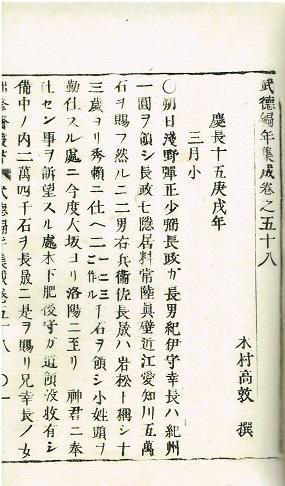 武德編年集成卷之五十八
木村高敦 撰
慶長十五庚戌年
三月小
〇朔日淺野彈正少弼長政ガ長男紀伊守幸長ハ紀州
一圓ヲ領シ長政七隱居料常陸眞壁近江愛知川五萬
石ヲ賜フ然ルニ二男右兵衞佐長晟ハ岩松ト稱シ十
三歲ヨリ秀賴ニ仕ヘ二一ニ三ニ作ル千石ヲ領シ小姓頭ヲ
勤仕スル處ニ今度大坂ヨリ洛陽ニ至リ 神君ニ奉
仕セン事ヲ訴望スル處木下肥後守ガ遺領沒收有シ
備中ノ内二萬四千石ヲ長晟ニ是ヲ賜リ兄幸長ノ女
武德編年集成卷五十八 〇一